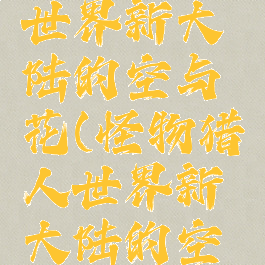 世界新大
陆的空与
花(怪物猎
人世界新
大陆的空